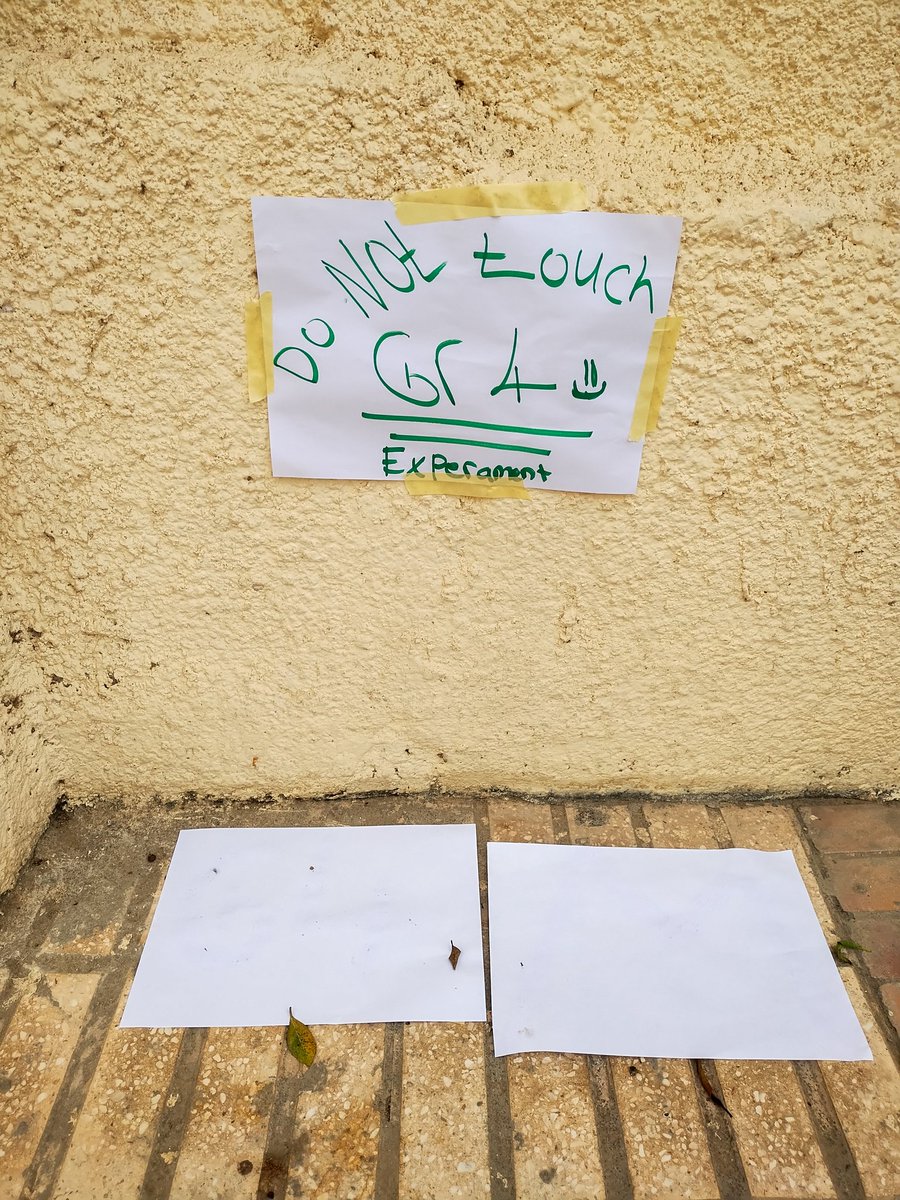 DO NOt touch
Gr 4
Experament